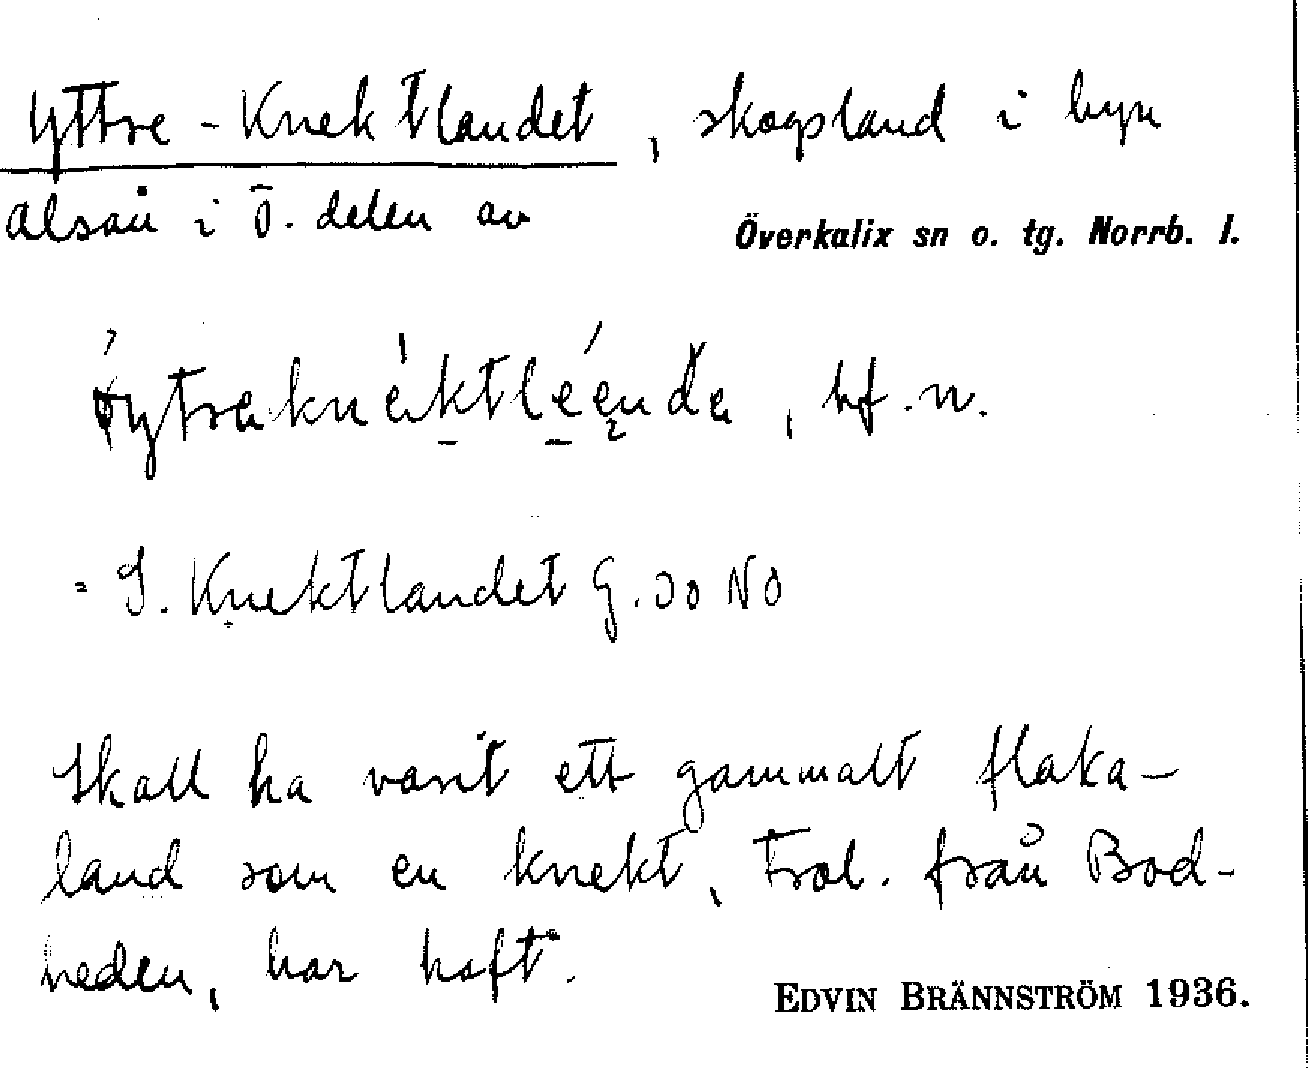 Yttre-Knektlandet, skogsland i byn
Alsån i Ö. delen av
Överkalix sn o. tg. Norrb. l.
, bf. n.
= S. Knektlandet G. 30 NO
Skall ha varit ett gammalt flaka-
land som en knekt, trol. från Bod-
heden, har haft.
EDVIN BRÄNNSTRÖM 1936.